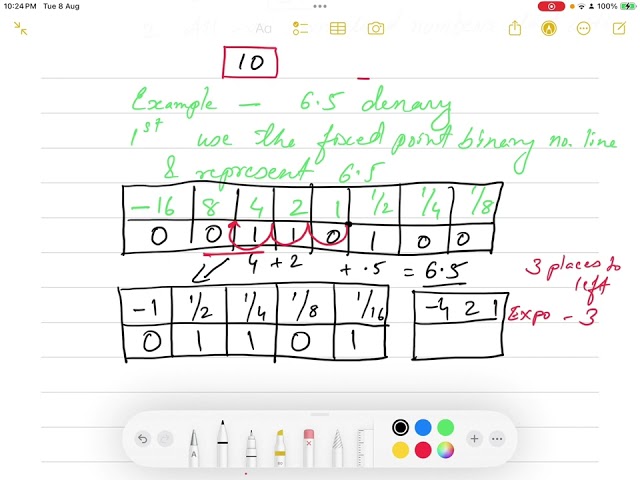 10:24 PM Tue 8 Aug
100%
Ao
10
Example — 6.5 denary
1st use the fixed point binary no. line
& represent 6.5
-16 8 4 2 1 1/2 1/4 1/8
0 0 1 1 0 1 0 0
4 + 2 + .5 = 6.5
3 places to
left
-1 1/2 1/4 1/8 1/16
-4 2 1
Expo - 3
0 1 1 0 1
A